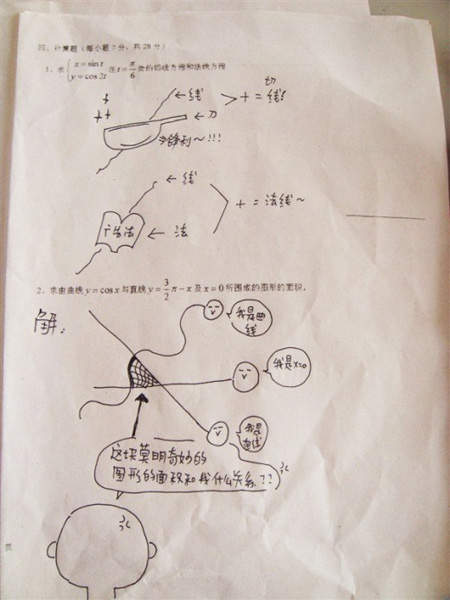 四、计算题（每小题7分，共28分）
1、求 { x = sin t
y = cos 2t 在 t = π/6 处的切线方程和法线方程
← 线
切
+ = 线!
← 刀
锋利～!!!
← 线
+ = 法线～
← 法
2、求由曲线 y = cos x 与直线 y = 3/2 π - x 及 x = 0 所围成的图形的面积。
解：
我是曲
线
我是x=0
我是
直线
这块莫明奇妙的
图形的面积和我什么关系??